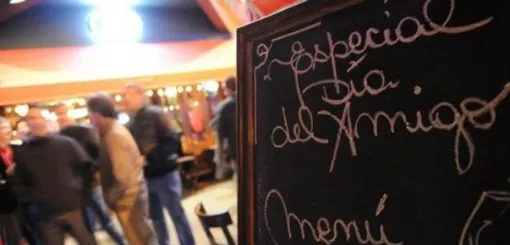 Especial
Día
del Amigo
Menú